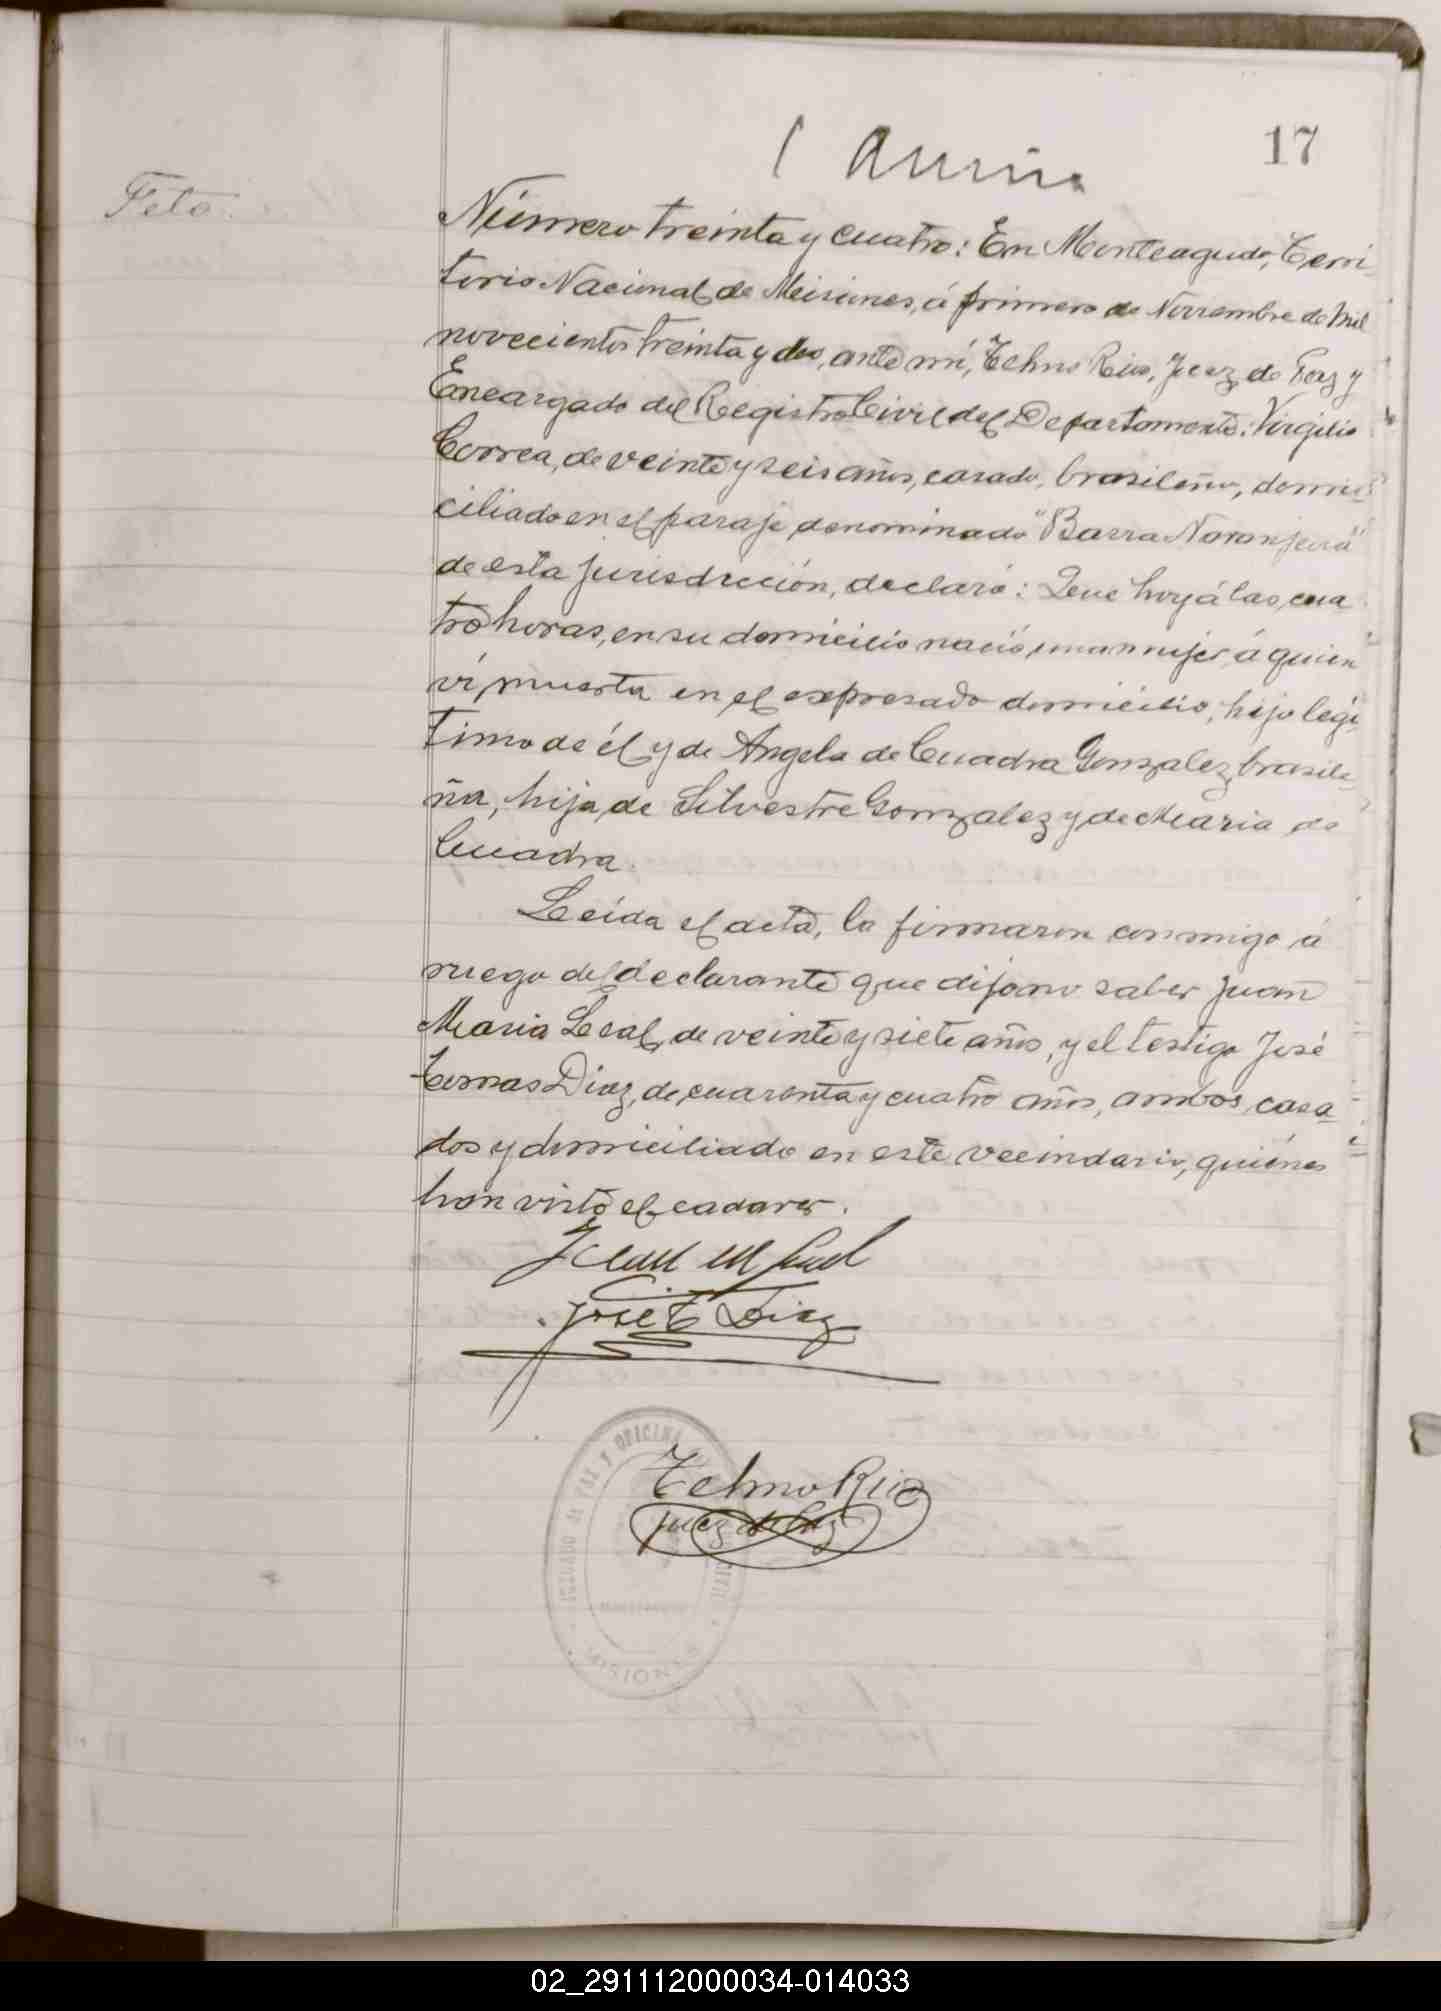 17
Feto.
Número treinta y cuatro: En Monteagudo, Terri-
torio Nacional de Misiones, á primero de Noviembre de mil
novecientos treinta y dos, ante mí, Telmo Rius, Juez de Paz y
Encargado del Registro Civil del Departamento: Virgilio
Correa, de veinte y seis años, casado, brasileño, domi-
ciliado en el paraje denominado "Barra Naranjeira"
de esta jurisdicción, declaró: Que hoy á las cua
tro horas, en su domicilio nació una mujer, á quien
ví, muerta en el expresado domicilio, hijo legí-
timo de él y de Angela de Cuadra Gonzalez, brasile-
ña, hija de Silvestre Gonzalez y de Maria de
Cuadra.
Leída el acta, la firmaron conmigo á
ruego del declarante que dijo no saber Juan
Maria Leal, de veinte y siete años, y el testigo José
Tomas Diaz, de cuarenta y cuatro años, ambos casa-
dos y domiciliado en este vecindario, quiénes
han visto el cadaver.
Juan M Leal
José T Diaz
Telmo Rius
Juez de Paz
JUZGADO DE PAZ Y OFICINA
MISIONES
02_291112000034-014033